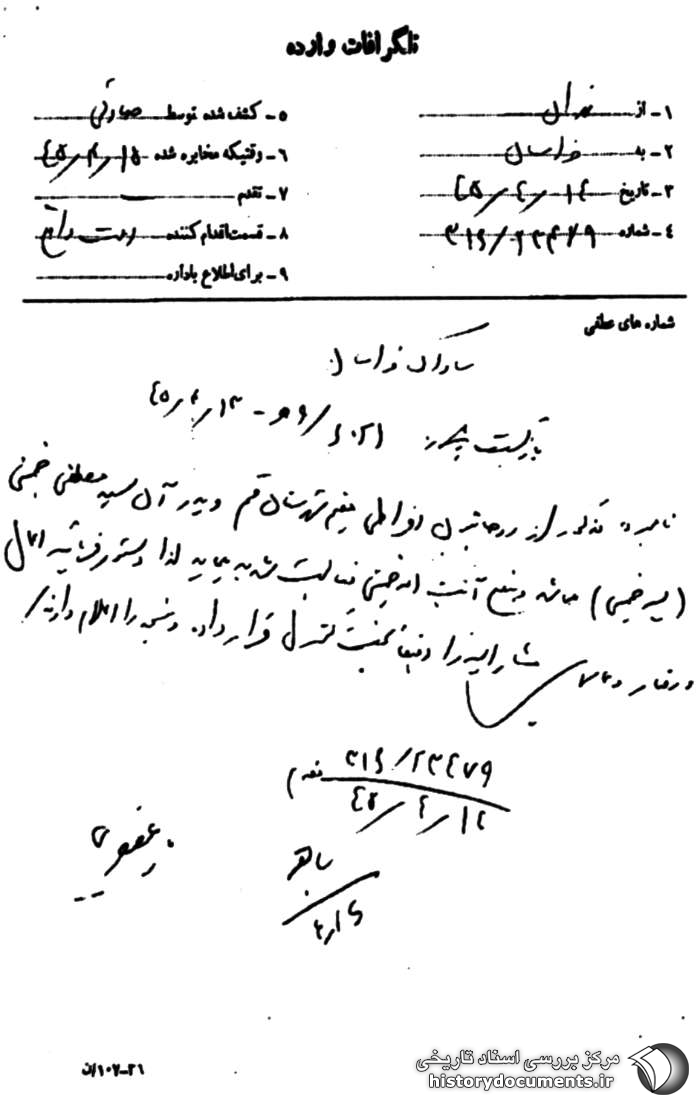 تلگرافات وارده
۱ - از تهران
۲ - به خراسان
۳ - تاریخ ۴۵/۴/۱۴
۴ - شماره ۳۱۶/۲۳۴۷۹
۵ - کشف شده توسط
۶ - وقتیکه مخابره شده ۴۵/۴/۱۵
۷ - تقدم
۸ - قسمت اقدام کننده
۹ - برای اطلاع باداره
شماره های عطفی
ساواک خراسان
۴۵/۴/۱۳ -
نامبرده از روحانیون افراطی مقیم شهرستان قم و پدر آن سید مصطفی خمینی
(پسر خمینی) میباشد و بنفع آیت اله خمینی فعالیت شدید مینماید لذا دستور فرمائید اعمال
و رفتار مشارالیه را دقیقاً تحت کنترل قرار داده و نتیجه را اعلام دارند/
۳۱۶/۲۳۴۷۹
۴۵/۴/۱۴
مقدم
غضنفری
۲۱-۱۰۷/ن
مرکز بررسی اسناد تاریخی
historydocuments.ir